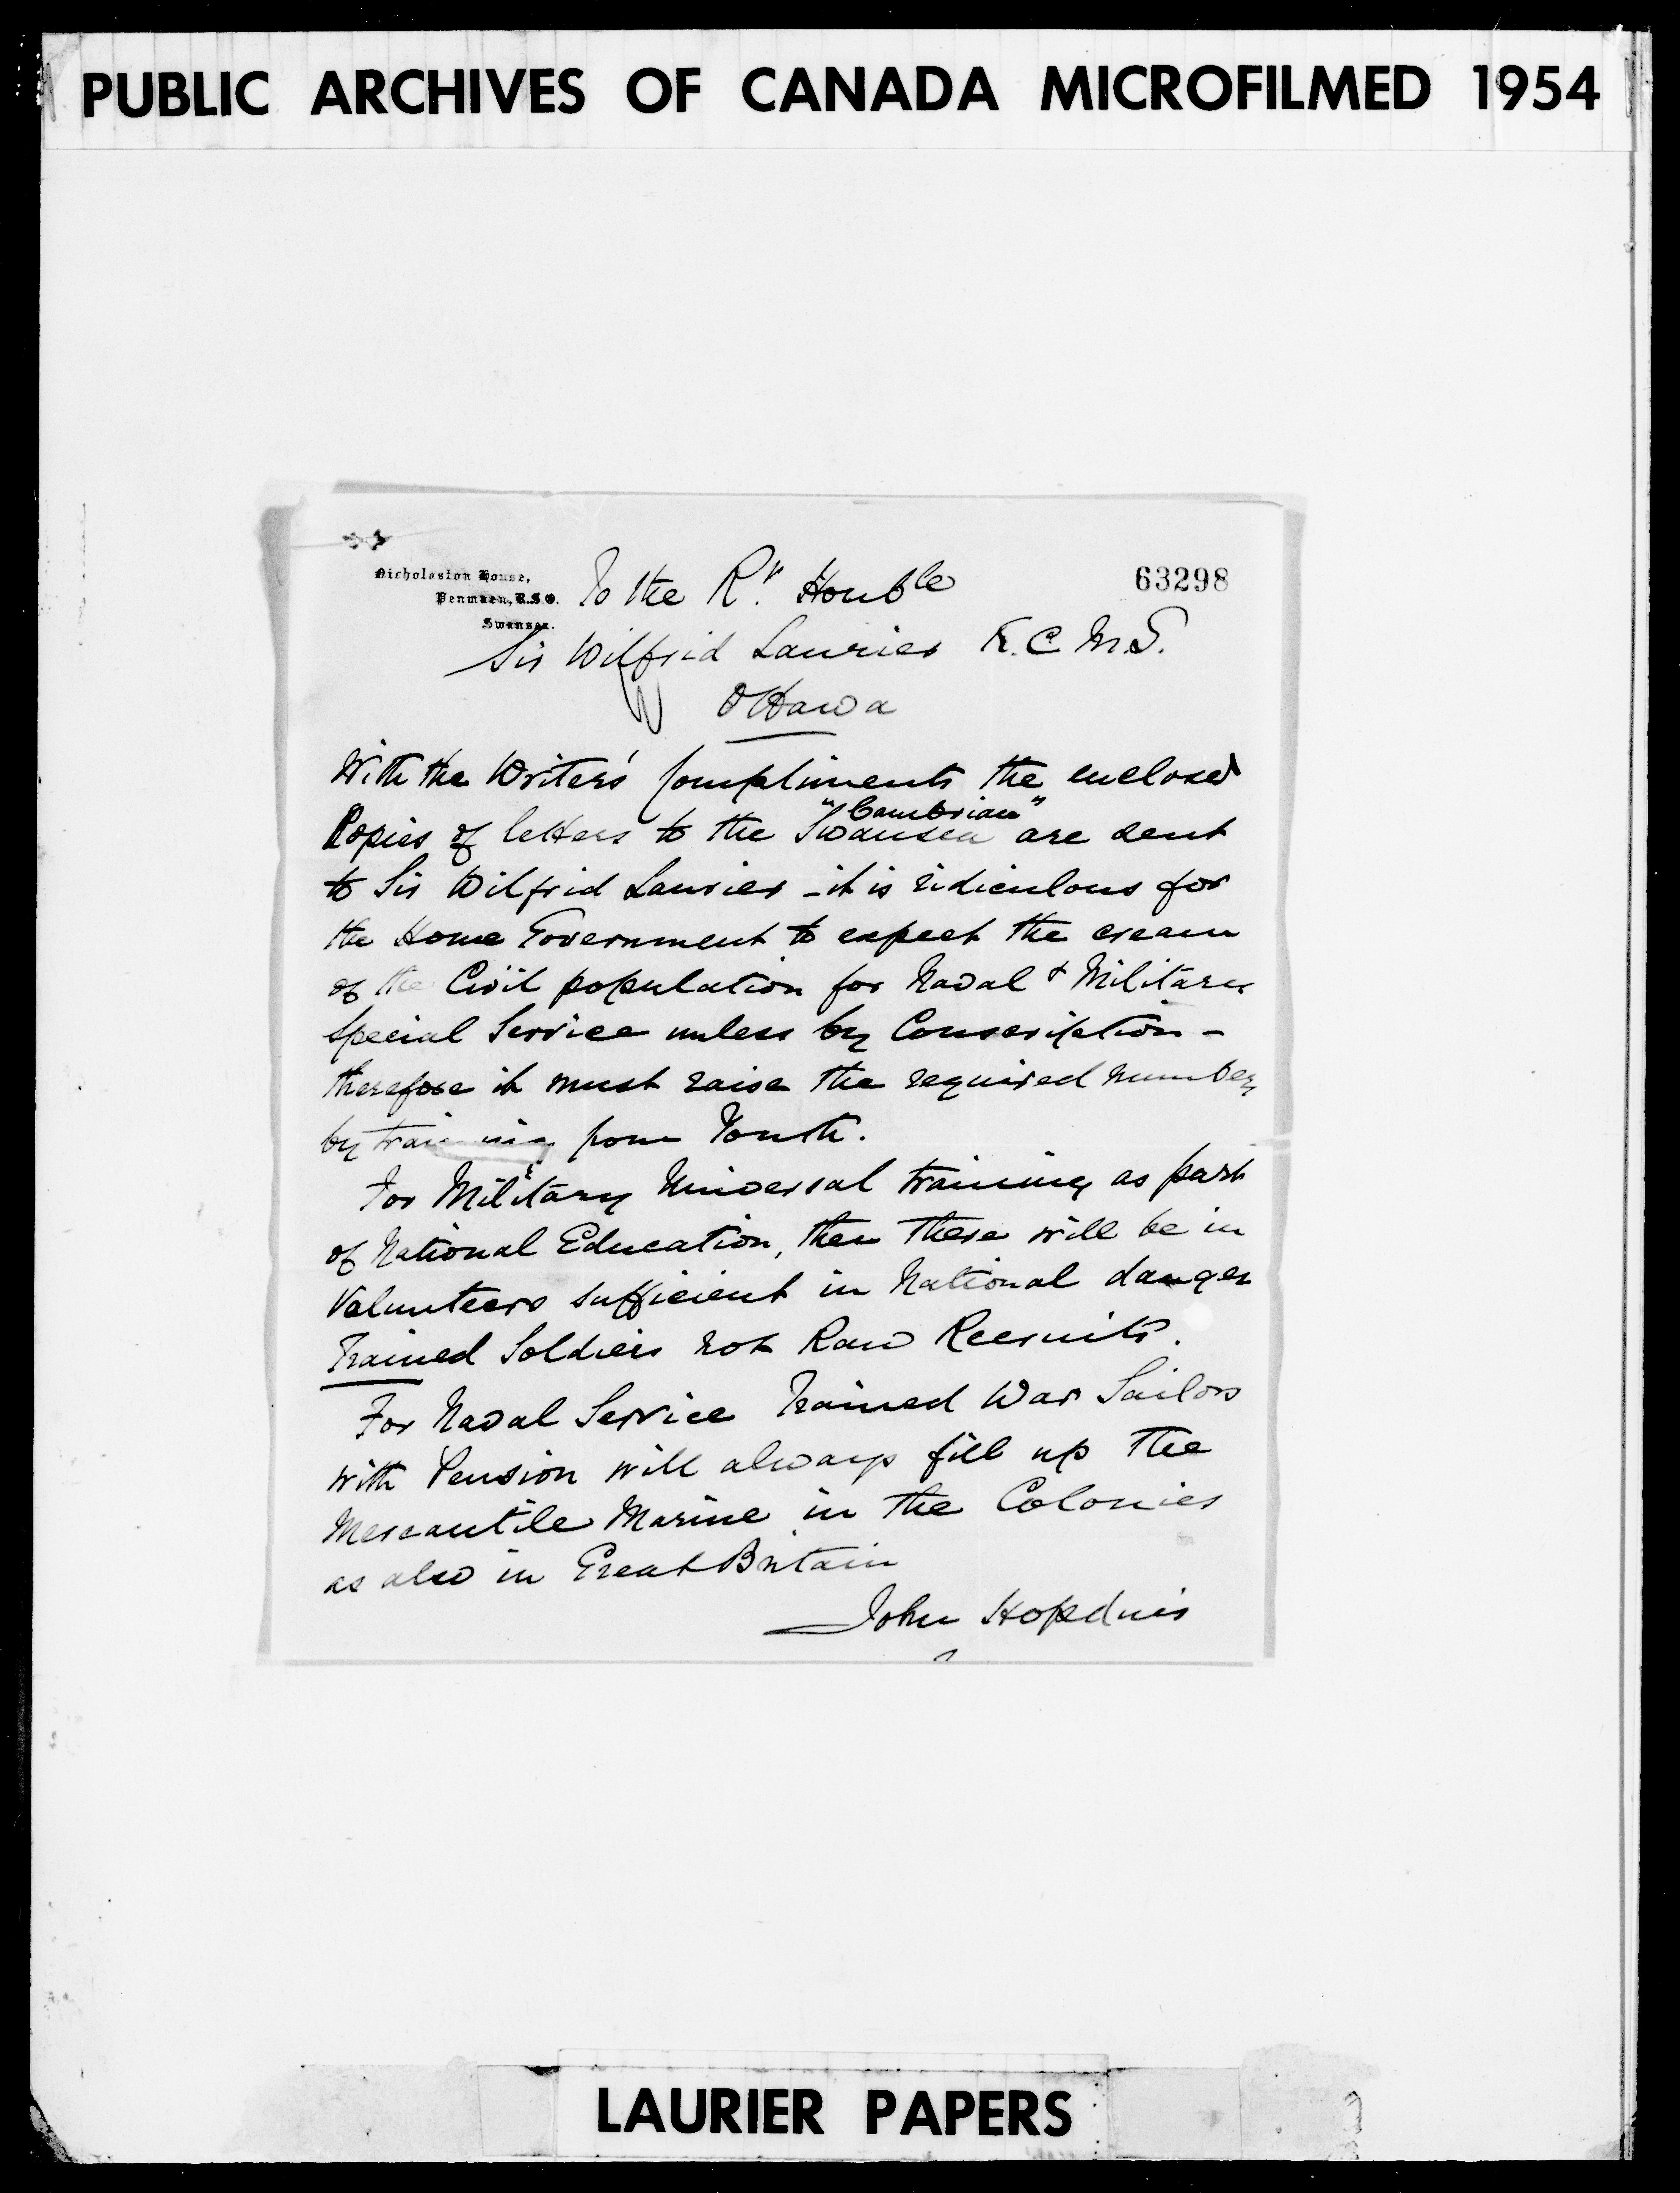 PUBLIC ARCHIVES OF CANADA MICROFILMED 1954
63298
Nicholaston House,
Penmaen, R.S.O.
Swansea.
To the Rt. Honble
Sir Wilfrid Laurier K.C.M.G.
Ottawa
With the Writers' Compliments the enclosed
Copies of letters to the Swansea "Cambrian" are sent
to Sir Wilfrid Laurier - it is ridiculous for
the Home Government to expect the cream
of the Civil population for Naval & Military
Special Service unless by Conscription -
therefore it must raise the required number,
by training from Youth.
For Military Universal training as part
of National Education, then there will be in
Volunteers sufficient in National danger
Trained Soldiers not Raw Recruits.
For Naval Service Trained War Sailors
with Pension will always fill up the
Mercantile Marine in the Colonies
as also in Great Britain
John Hopkins
LAURIER PAPERS